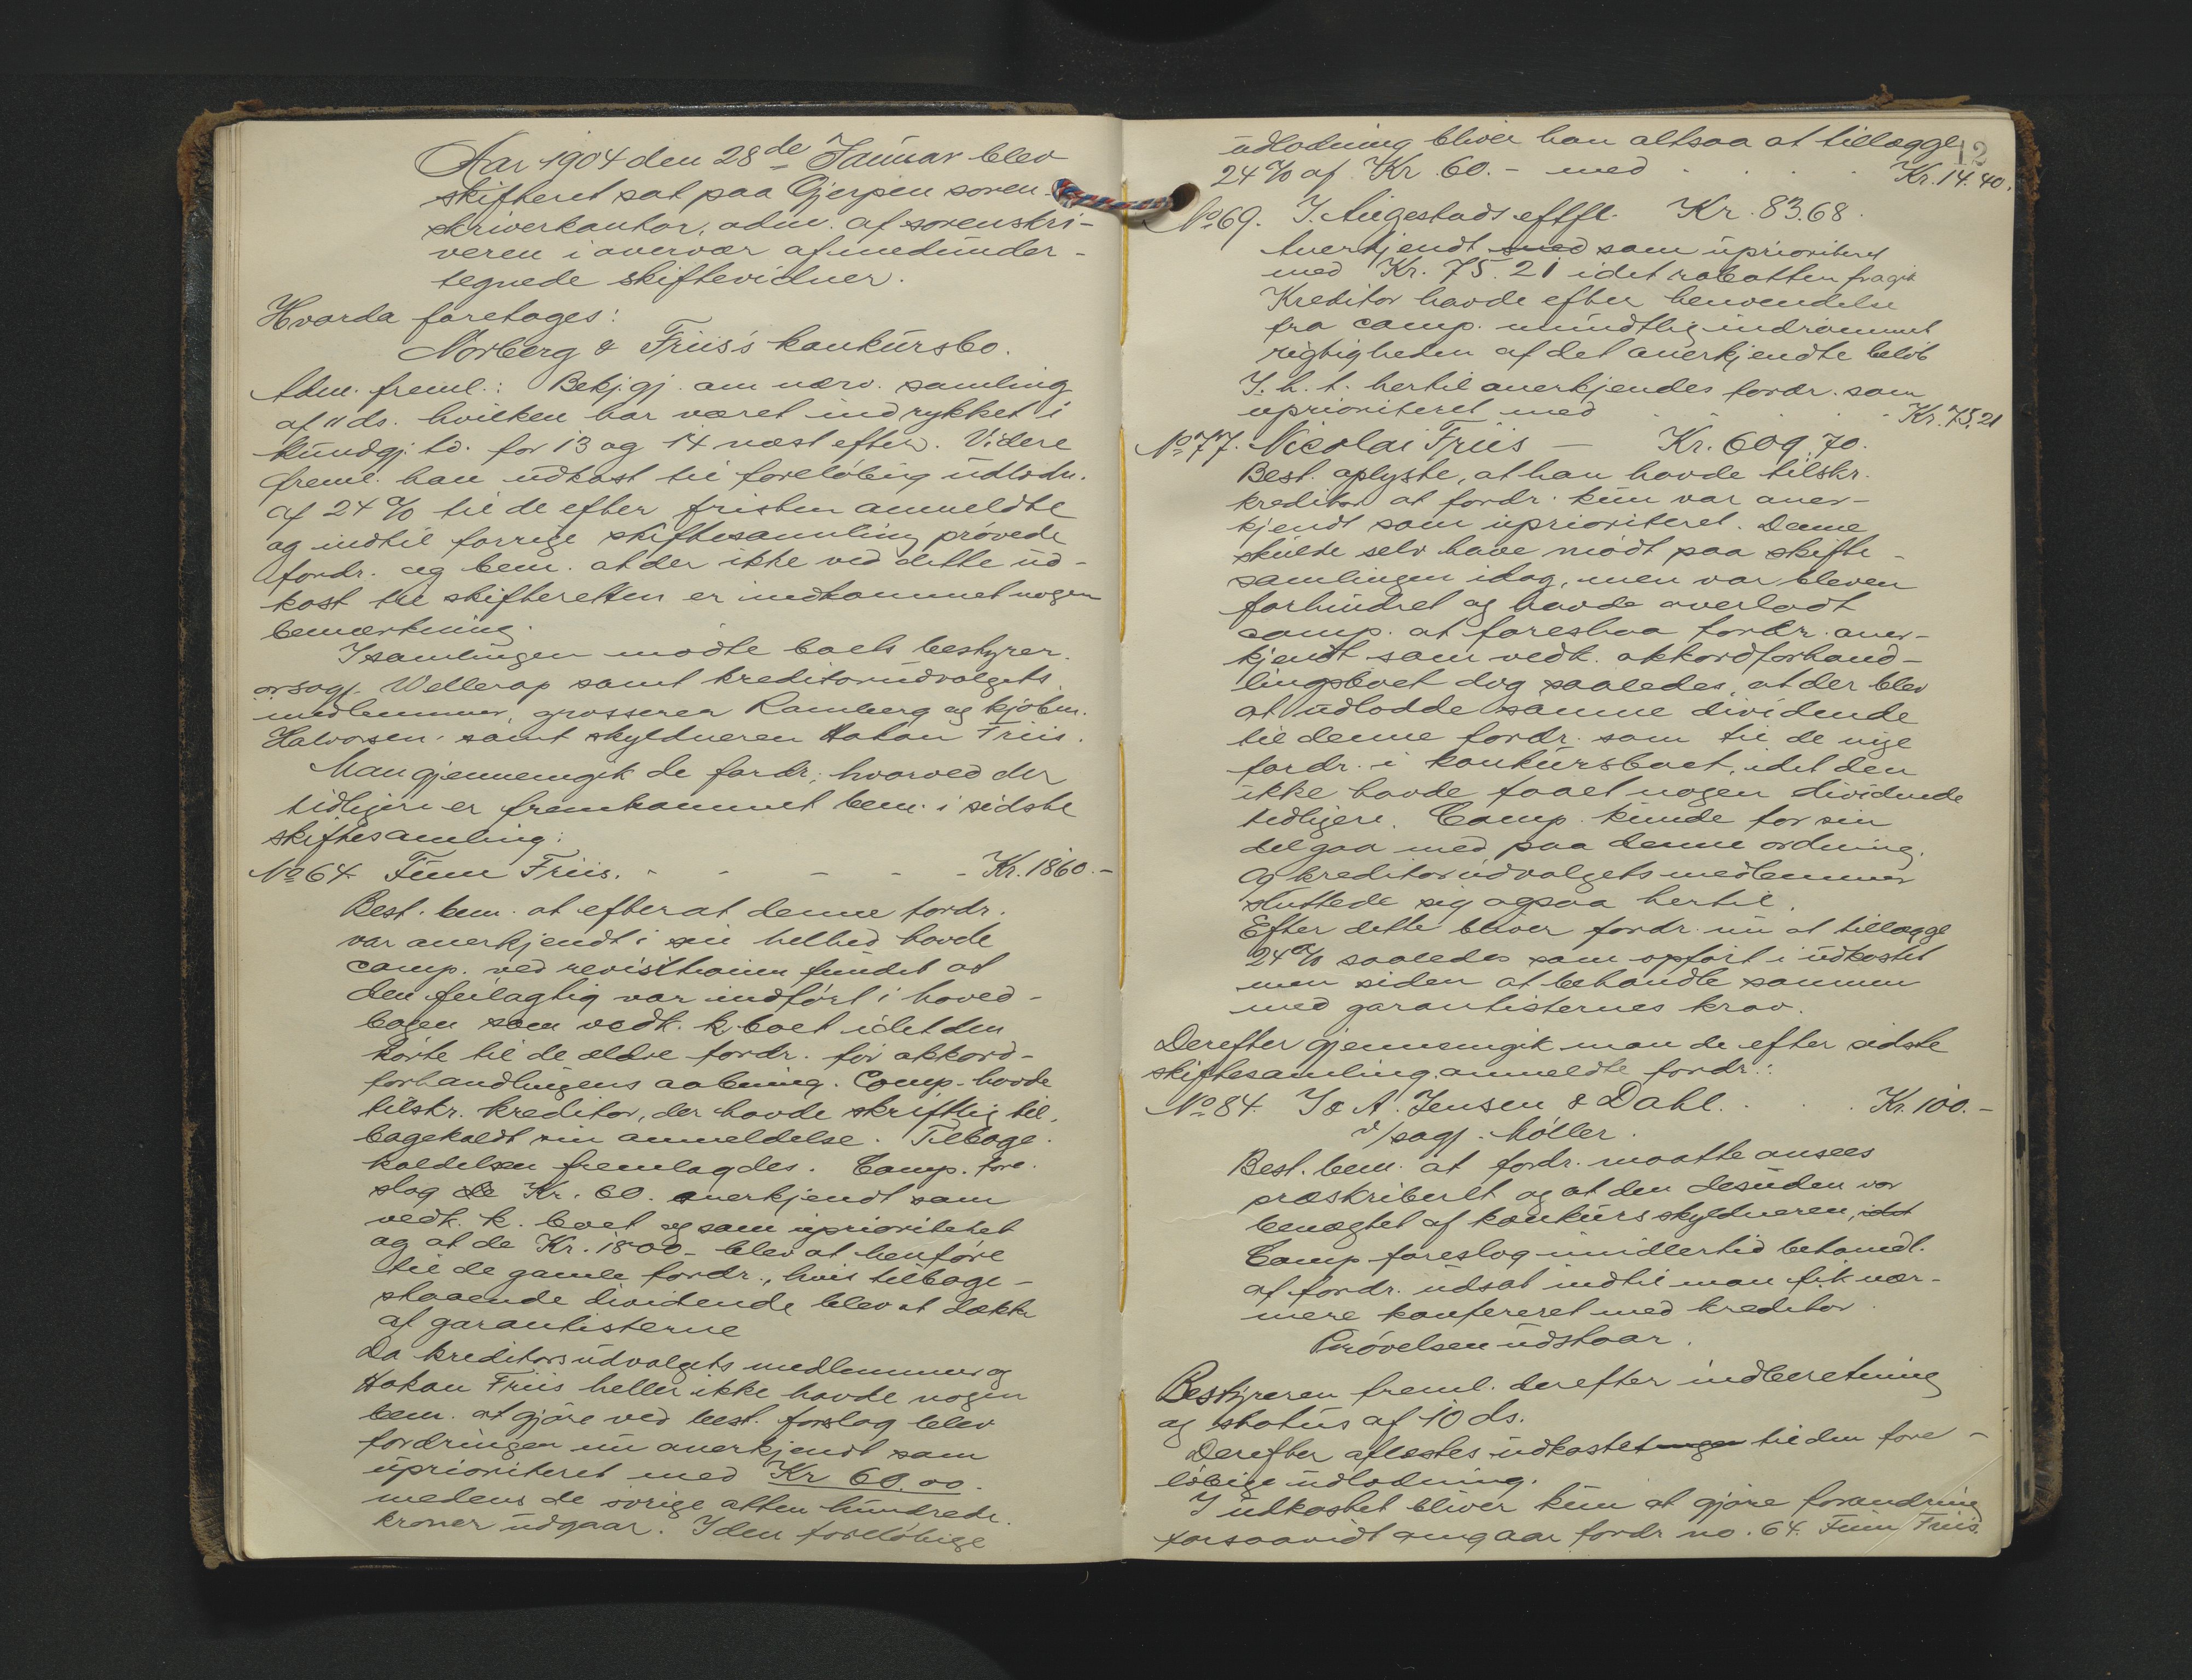 Aar 1904 den 28de Januar blev
skifteret sat paa Gjerpen soren-
skriverkontor, adm. af sorenskri-
veren i overvær af medunder-
tegnede skiftevidner.
Hvorda foretoges:
Norberg & Friis's konkursbo.
Adm. freml.: Bekj.gj. om nærv. samling
af 11 ds. hvilken har været indrykket i
kundgj. td. for 13 og 14 næst efter. Videre
freml. han udkast til foreløbig udlodn.
af 24 % til de efter fristen anmeldte
og indtil forrige skiftesamling prøvede
fordr. og bem. at der ikke ved dette ud-
kast til skifteretten er indkommet nogen
bemærkning.
I samlingen mødte boets bestyrer
orsagf. Wellerop samt kreditorudvalgets
medlemmer, grosserer Ramberg og kjøbm.
Halvorsen samt skyldneren Hakon Friis.
Man gjennemgik de fordr., hvorved der
tidligere er fremkommet bem. i sidste
skiftesamling:
No 64 Finn Friis. - - - - - Kr. 1860.-
Best. bem. at efterat denne fordr.
var anerkjendt i sin helhed havde
comp. ved revisionen fundet at
den feilagtig var indført i hoved-
bogen som vedk. k. boet idet den
hørte til de ældre fordr. før akkord-
forhandlingens aabning. Comp. havde
tilskr. kreditor, der havde skriftlig til-
bagekaldt sin anmeldelse. Tilbage-
kaldelsen fremlagdes. Comp. fore-
slog de Kr. 60. anerkjendt som
vedk. k. boet og som uprioritetet
og at de Kr. 1800- blev at henføre
til de gamle fordr., hvis tilbage-
staaende dividende blev at dække
af garantisterne
Da kreditorsudvalgets medlemmer og
Hakon Friis heller ikke havde nogen
bem. at gjøre ved best. forslag blev
fordringen nu anerkjendt som
uprioriteret med Kr 60.00.
medens de øvrige atten hundrede
kroner udgaar. I den foreløbige
12
udlodning bliver han altsaa at tillægge
24 % af Kr. 60.- med . . . Kr. 14.40.
No 69. J. eftfl. Kr. 83.68.
Anerkjendt med som uprioriteret
med Kr. 75.21 idet rabatten fragik
Kreditor havde efter henvendelse
fra comp. mundtlig indrømmet
rigtigheden af det anerkjendte beløb
I. h. t. hertil anerkjendes fordr. som
uprioriteret med . . . . Kr. 75.21
No 77. Nicolai Friis - Kr. 609.70.
Best. oplyste, at han havde tilskr.
kreditor at fordr. kun var aner-
kjendt som uprioriteret. Denne
skulde selv have mødt paa skifte-
samlingen idag, men var bleven
forhindret og havde overladt
comp. at foreslaa fordr. aner-
kjendt som vedk. akkordforhand-
lingsboet dog saaledes, at der blev
at udlodde samme dividende
til denne fordr. som til de nye
fordr. i konkursboet, idet den
ikke havde faaet nogen dividende
tidligere. Comp. kunde for sin
del gaa med paa denne ordning.
Og kreditorudvalgets medlemmer
sluttede sig ogsaa hertil.
Efter dette bliver fordr. nu at tillægge
24 % saaledes som opført i udkastet
men siden at behandle sammen
med garantisternes krav.
Derefter gjennemgik man de efter sidste
skiftesamling anmeldte fordr.:
No 84. J & A. Jensen & Dahl. . . . Kr. 100.-
v/sagf. Møller.
Best. bem. at fordr. maatte ansees
præskriberet og at den desuden var
benægtet af konkursskyldneren, idet
Comp. foreslog imidlertid behandl.
af fordr. udsat indtil man fik nær-
mere konfereret med kreditor
Prøvelsen udstaar.
Bestyreren freml. derefter indberetning
og status af 10 ds.
Derefter aflæstes udkastet til den fore-
løbige udlodning.
I udkastet bliver kun at gjøre forandring
forsaavidt angaar fordr no. 64. Finn Friis.